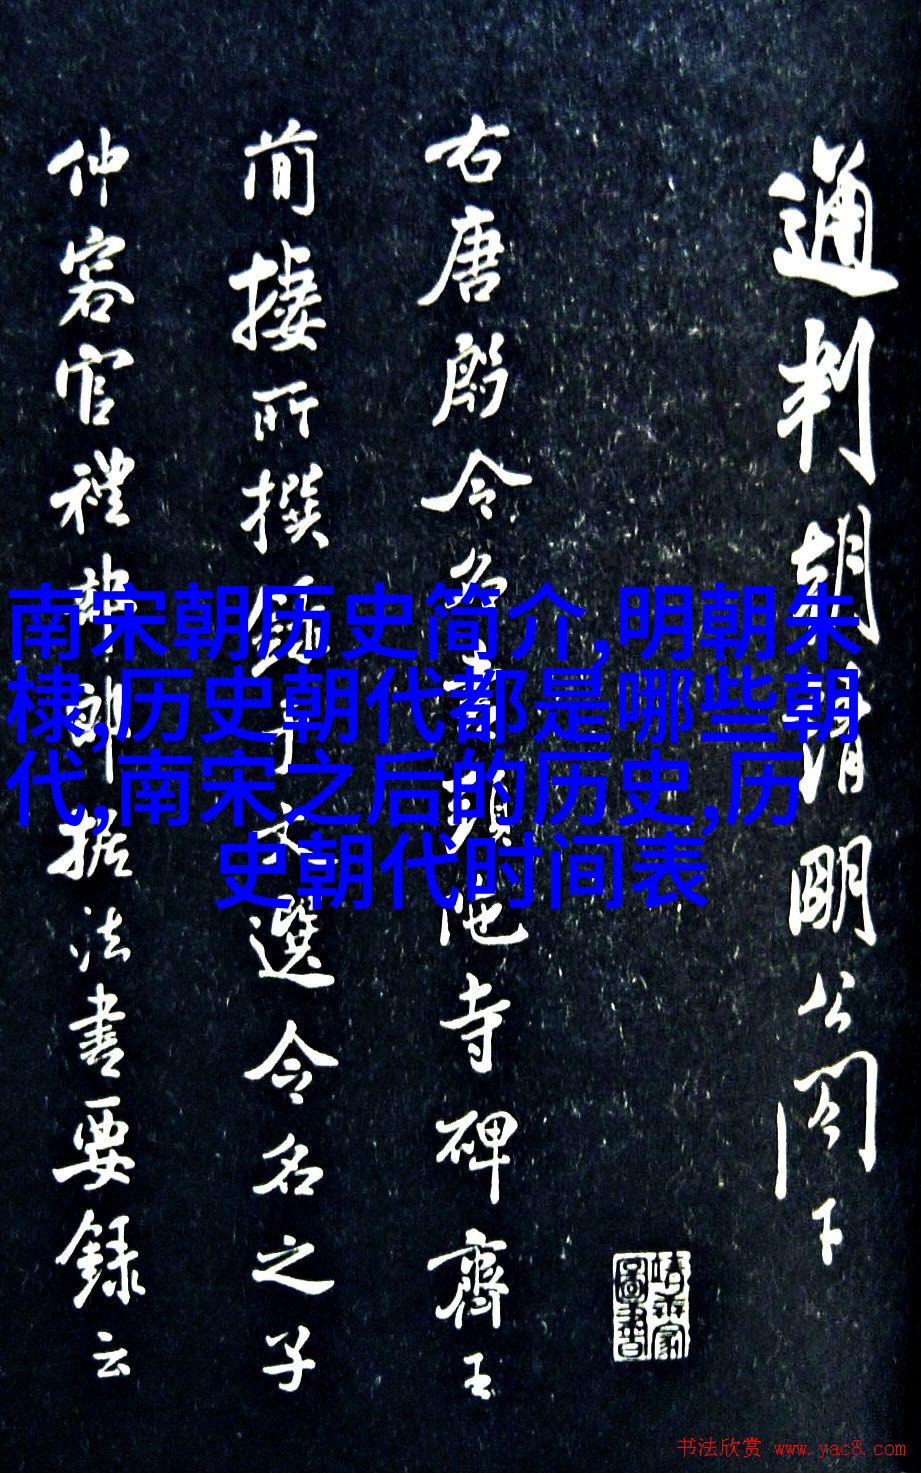 通判朝請明公閣下
右唐殷令名書頭陁寺碑齊王
簡棲所撰 于文選令名之子
仲容官禮部郎据法書要録云
南宋朝历史简介,明朝朱
棣,历史朝代都是哪些朝
代,南宋之后的历史,历
史朝代时间表
书法欣赏 www.yac8.com